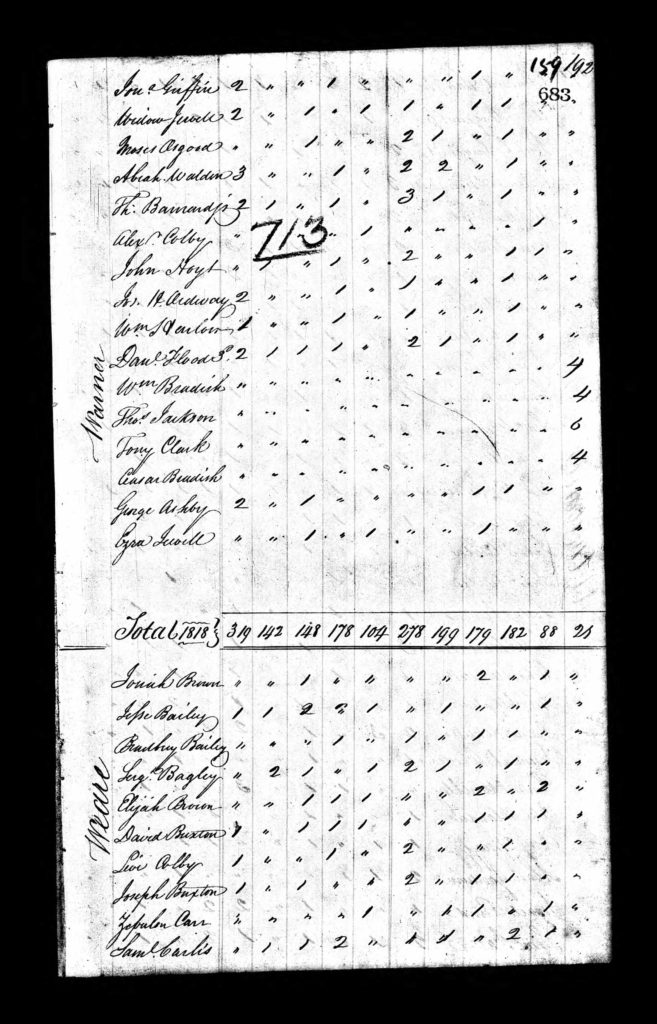 159 192
683.
Jona Griffin 2 " " 1 " " " 1 "
Widow Jewell 2 " 1 " 1 1 " 1 1
Moses Osgood " " 1 " " 2 1 " 1 " "
Abiah Waldin 3 " " 1 " 2 2 " 1 " "
Th: Barnard jr 2 1 " 1 " 3 1 " 1 " "
Alexr. Colby " " " 1 " " " " 1 "
713
John Hoyt " 1 " 1 " 2 " " 1 1 "
H. Ordway 2 " " 1 " 1 " " 1 " "
Wm Harlow 1 " " 1 " 1 " " 1 " "
Danl. Flood 2 1 1 1 " 2 1 " 1 " "
Warner
Wm Bradish " " " " " " " " " " 4
Thos. Jackson " " " " " " " " " " 4
Tony Clark " " " " " " " " " " 6
Ceasar Bradish " " " " " " " " " " 4
George Ashby 2 " 1 " " " " 1 1 " "
Ezra Jewell " " 1 " 1 " " 1 " " "
Total 1818 319 142 148 178 104 278 199 179 182 88
Josiah Brown " " 1 " " " " 2 " 1 "
Jesse Bailey 1 1 2 " 1 " 1 1 " 1 "
Bradbury Bailey " " " 1 " 1 " 1 1 1 "
Weare
Sergt. Bagley " 2 1 " 1 2 1 " 1 " "
Elijah Brown " " 1 1 1 " " 2 " 2 "
David Buxton 1 " 1 1 1 " " " 1 1 1 "
Levi Colby 1 " " 1 " 2 " " 1 " "
Joseph Buxton 1 " 1 " " 2 " 1 1 " "
Zebulon Carr " " " " 1 " " 1 " 1 "
Saml. " 1 1 2 " " " " 2 1 "